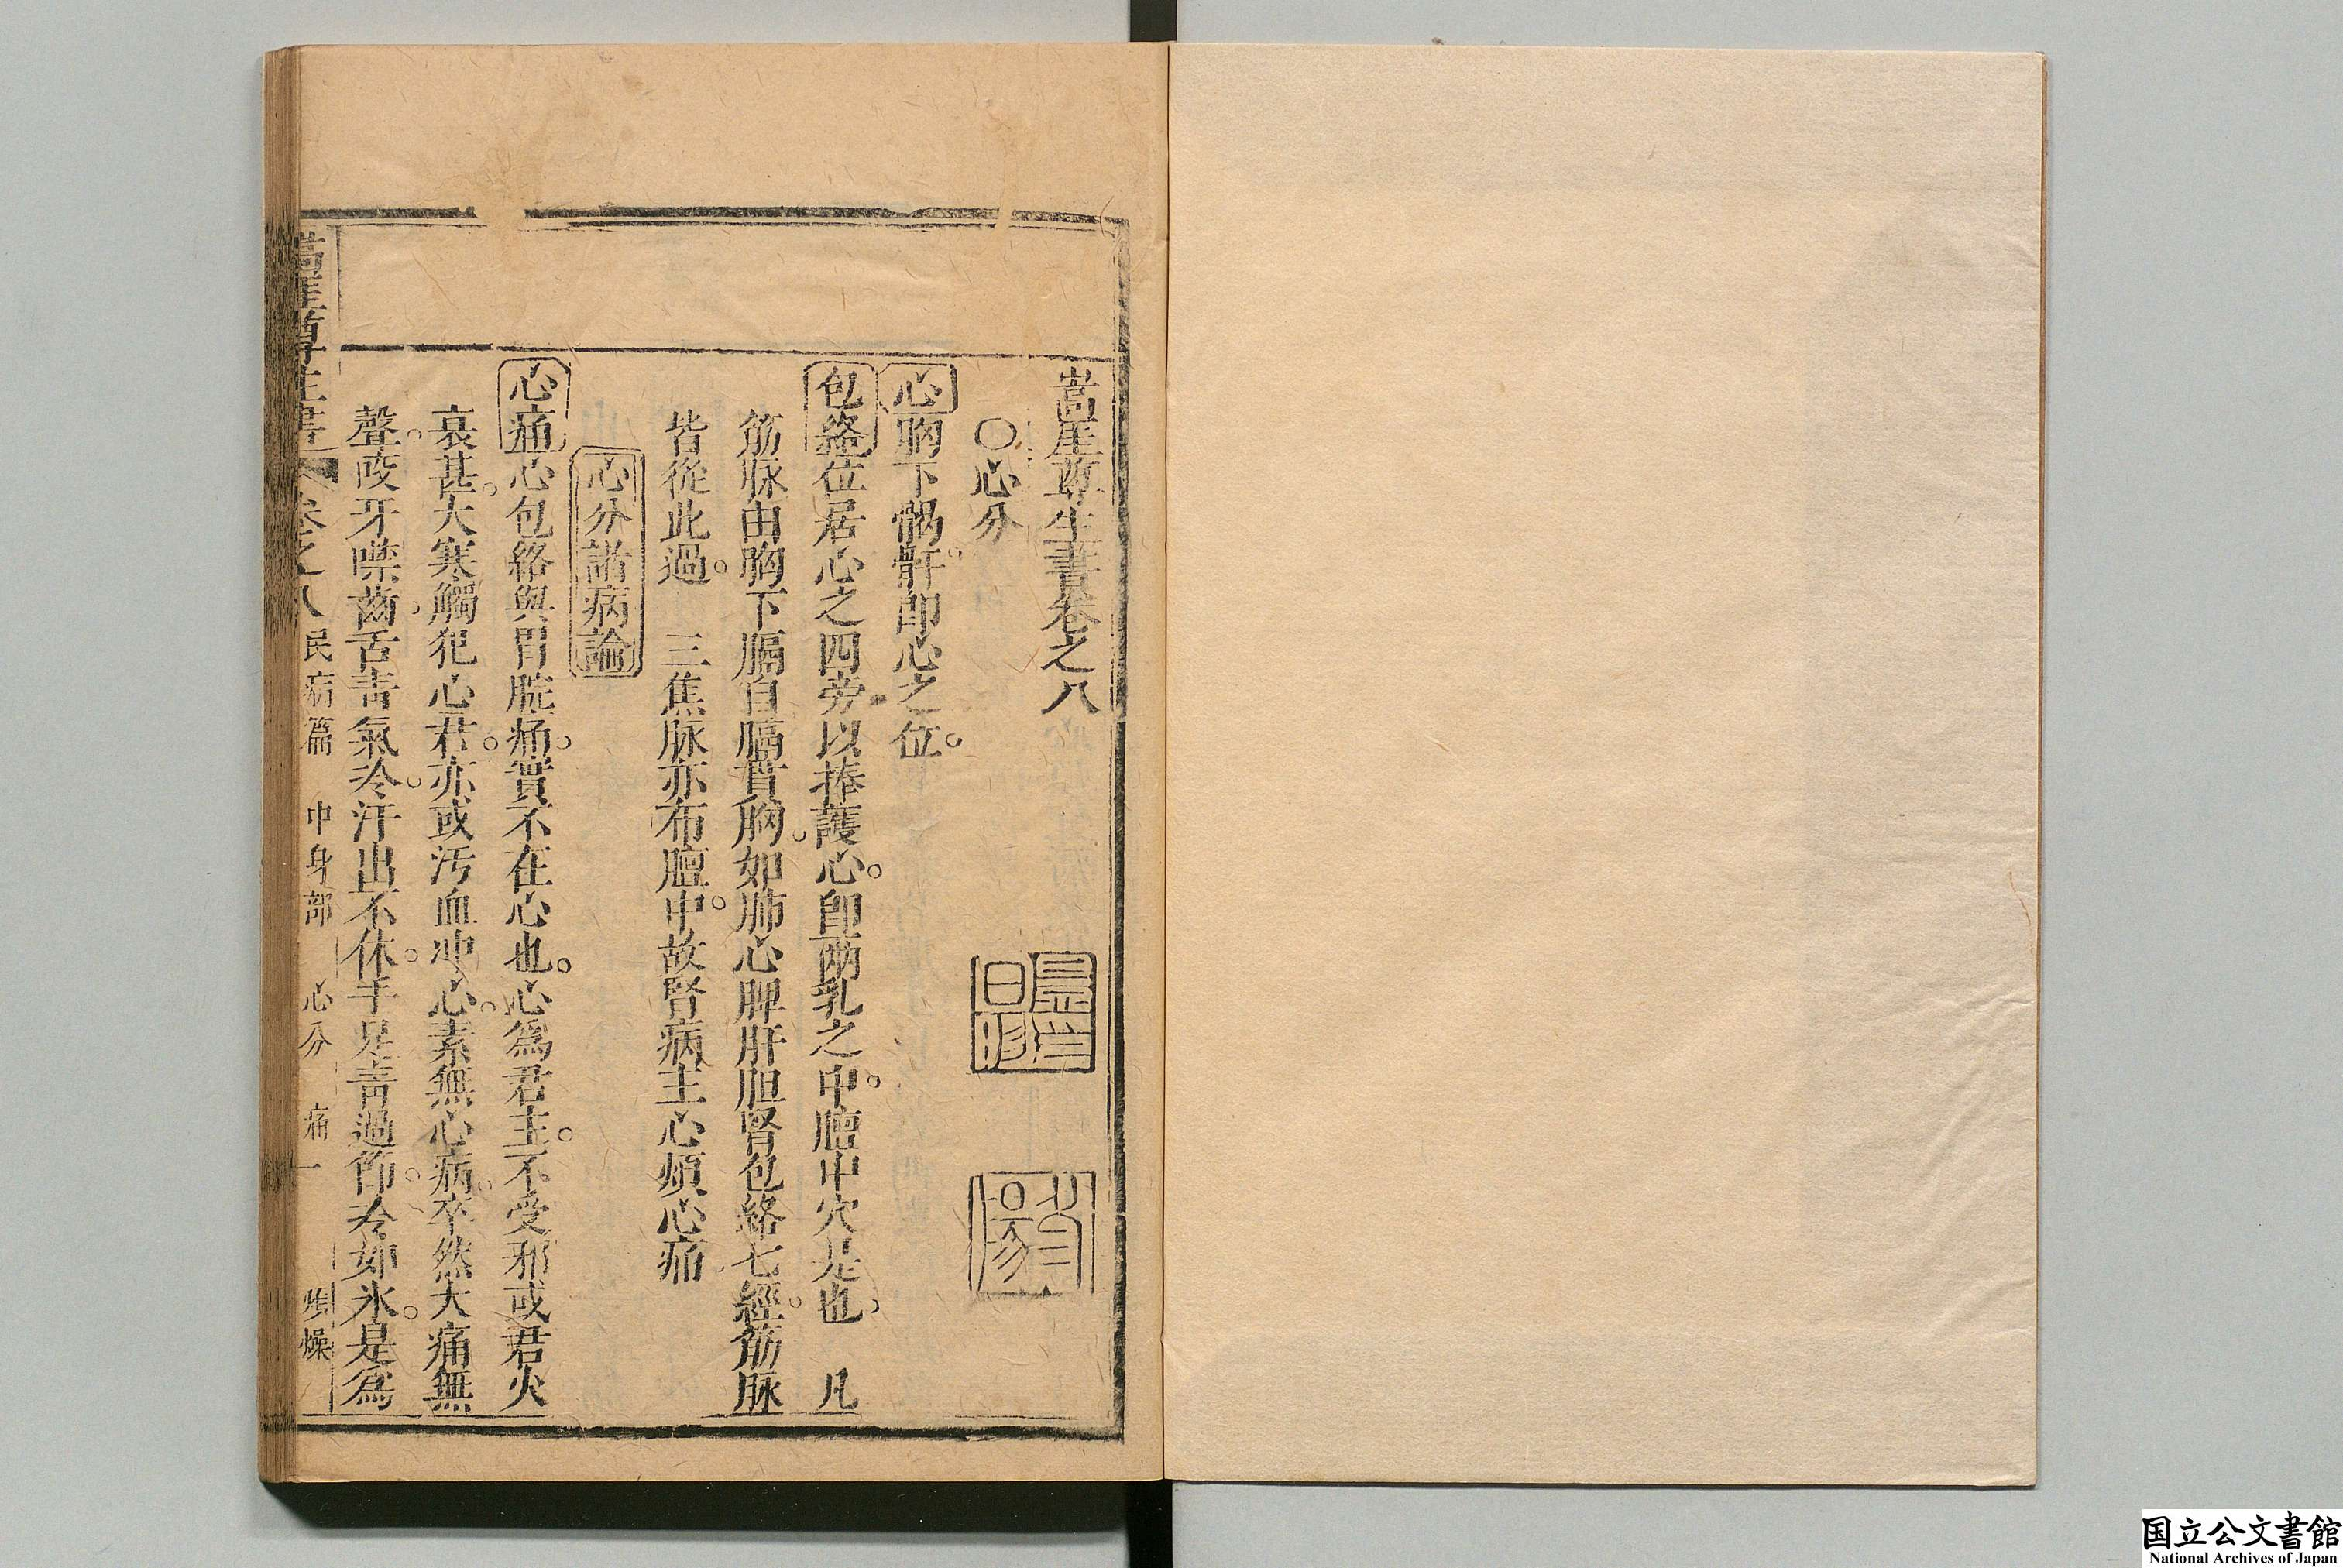 嵩厓尊生書卷之八
○心分
心胸下䯏骬卽心之位
包絡位居心之四旁以捧護心卽兩乳之中膻中穴是也　凡
筋脉由胸下膈自膈貫胸如肺心脾肝胆腎包絡七經筋脉
皆從此過　三焦脉亦布膻中故腎病主心煩心痛
心分諸病論
心痛心包絡與胃脘痛實不在心也心爲君主不受邪或君火
衰甚大寒觸犯心君亦或汚血冲心素無心病卒然大痛無
聲咬牙噤齒舌青氣冷汗出不休手足青過節冷如氷是爲
嵩厓尊生書　卷之八　民病篇　中身部　心分　痛一　煩燥
国立公文書館
National Archives of Japan